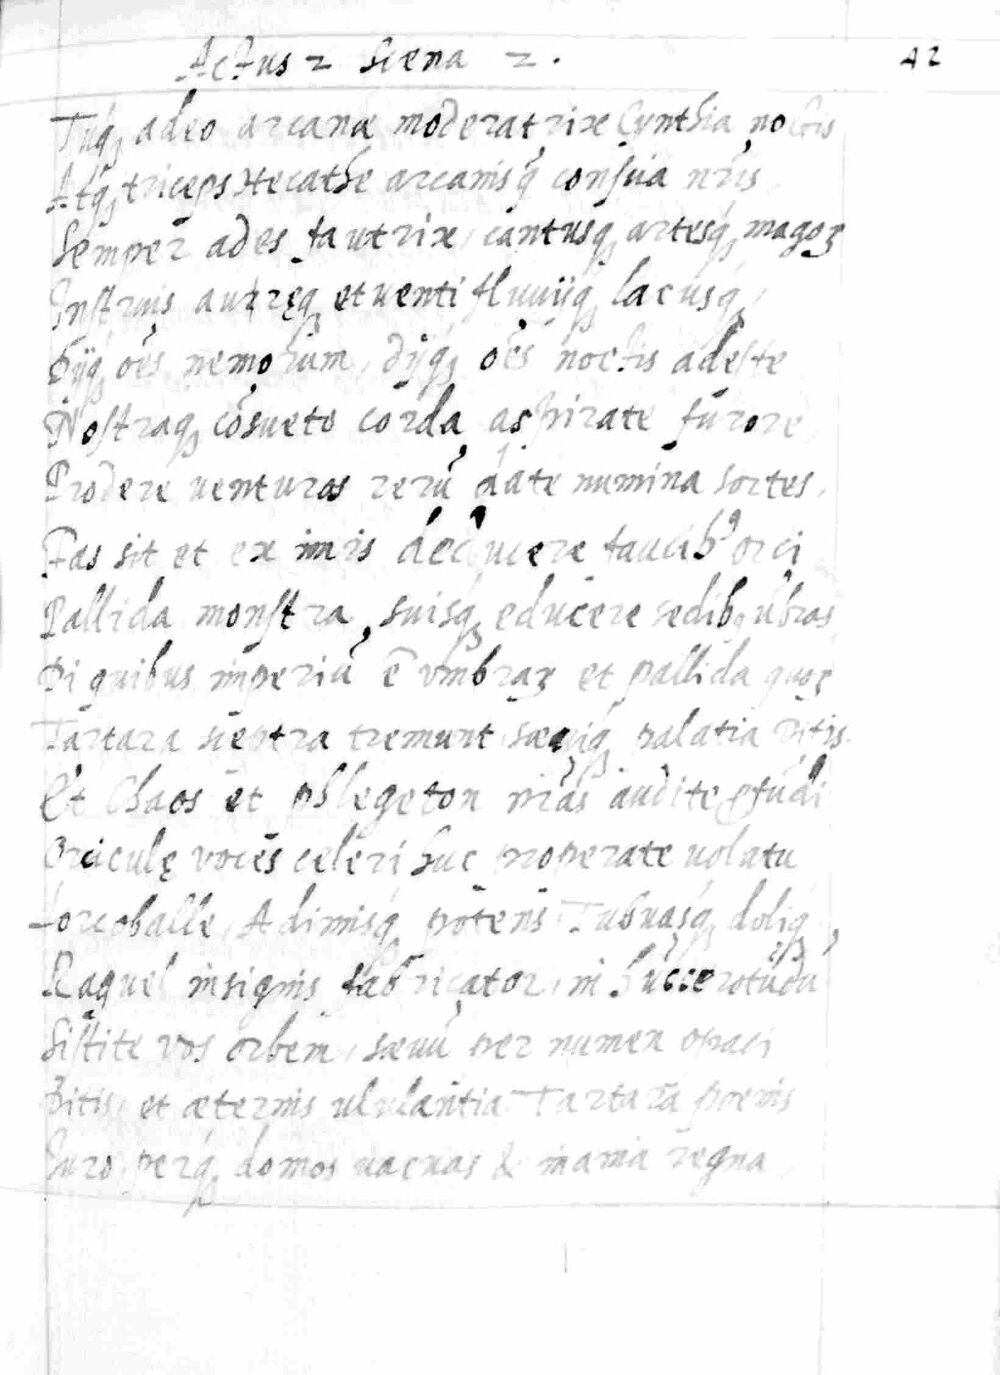 Actus 2 Scena 2. 42
Tuq; adeo arcanæ moderatrix Cynthia noctis
Atq; triceps Hecathe arcanisq; conscia nr̃is
Semper ades fautrix, cantusq; artesq; magoꝝ
Instruis auręq; et uenti fluuijq; lacusq;
Dijq; oẽs nemorum, dijq; oẽs noctis adeste
Nostraq; cõsueto corda aspirate furore
Prodere venturos rerũ date numina sortes.
Fas sit et ex imis deducere faucibꝰ orci
Pallida monstra, suisq; educere sedibꝰ ũbras
Di quibus imperiũ ẽ vmbraꝝ et pallida quoꝝ
Tartara sceptra tremunt, sæuiq; palatia Ditis.
Et Chaos et phlegeton nr̃as audite ꝓfũdi
voces celeri huc properate uolatu
Adimisq; potens Tubuasq; doliq;
Raquel insignis fabricator, in hũcce rotũdũ
Sistite vos orbem, sæuũ per numen opaci
Ditis, et æternis ululantia Tartara poenis
Juro, perq; domos uacuas & inania regna